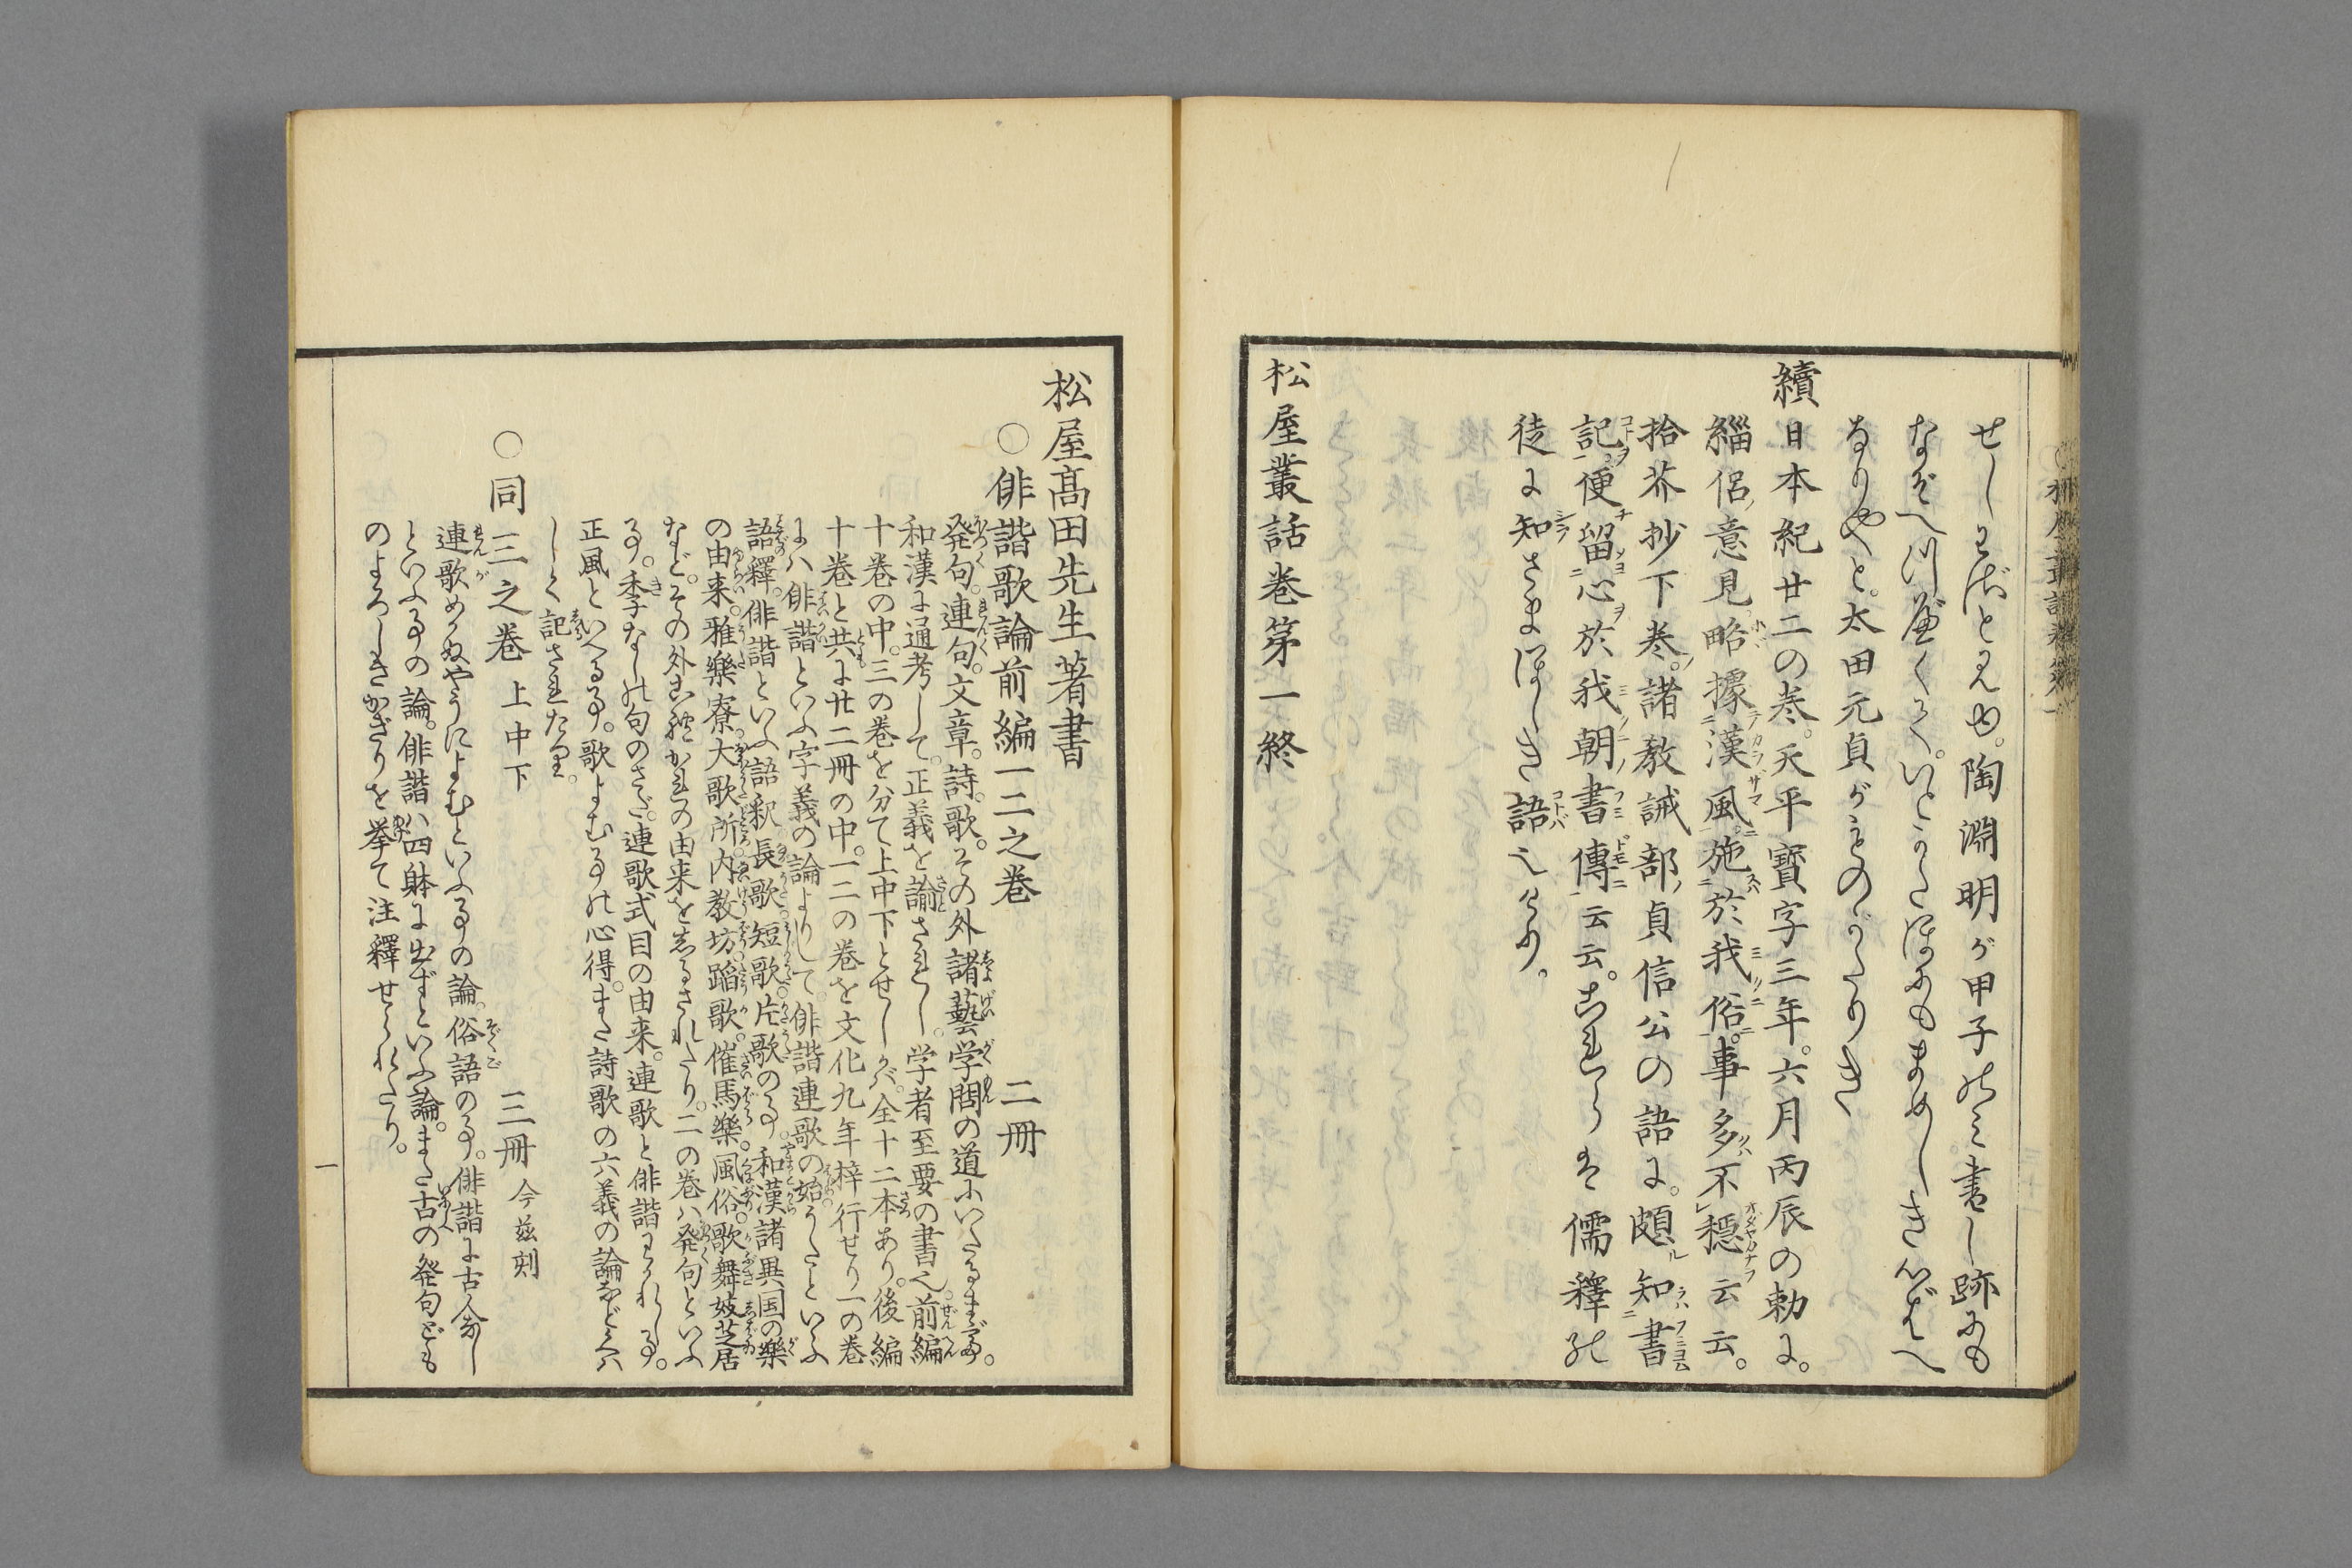 せしわざとみゆ。陶淵明が甲子のミ書し跡にも
なぞへつべくて。いとうたほにもまめしき心ばへ
なりやと。太田元貞がものがたりき
續日本紀廿二の巻。天平寳字三年。六月丙辰の勅に。
緇侶意見略據漢風。施於我俗。事多不穏云云。
拾芥抄下巻。諸教誡部貞信公の語に。頗知書
記。便留心於我朝書傳云云。これらは儒釋の
徒に知さまほしき語也けり。
松屋叢話巻第一終
松屋髙田先生著書
○俳諧歌論前編一二之巻 二冊
発句。連句。文章。詩。歌。その外諸藝学問の道にいたるまで。
和漢に通考して。正義を諭されし。学者至要の書也。前編
十巻の中。三の巻を分て上中下とせしかば。全十二本あり。後編
十巻と共に廿二冊の中。一二の巻を文化九年梓行せり一の巻
には俳諧といふ字義の論よりして。俳諧連歌の始。うたといふ
語釋。俳諧といふ語釈。長歌。短歌。片歌の事。和漢諸異国の樂
の由来。雅樂寮。大歌所。内教坊。蹈歌。催馬樂。風俗。歌舞妓芝居
など。その外これかれの由来をしるされたり。二の巻は発句といふ
事。季なしの句のさだ。連歌式目の由来。連歌と俳諧わかれし事。
正風といへる事。歌よむ事の心得。また詩歌の六義の論などくは
しく記されたり。
○同三之巻 上中下 三冊 今茲刻
連歌めかぬやうによむといふ事の論。俗語の事。俳諧に古今なし
といふ事の論。俳諧は四躰に出ずといふ論。また古の発句ども
のよろしきかぎりを挙て注釋せられたり。
一